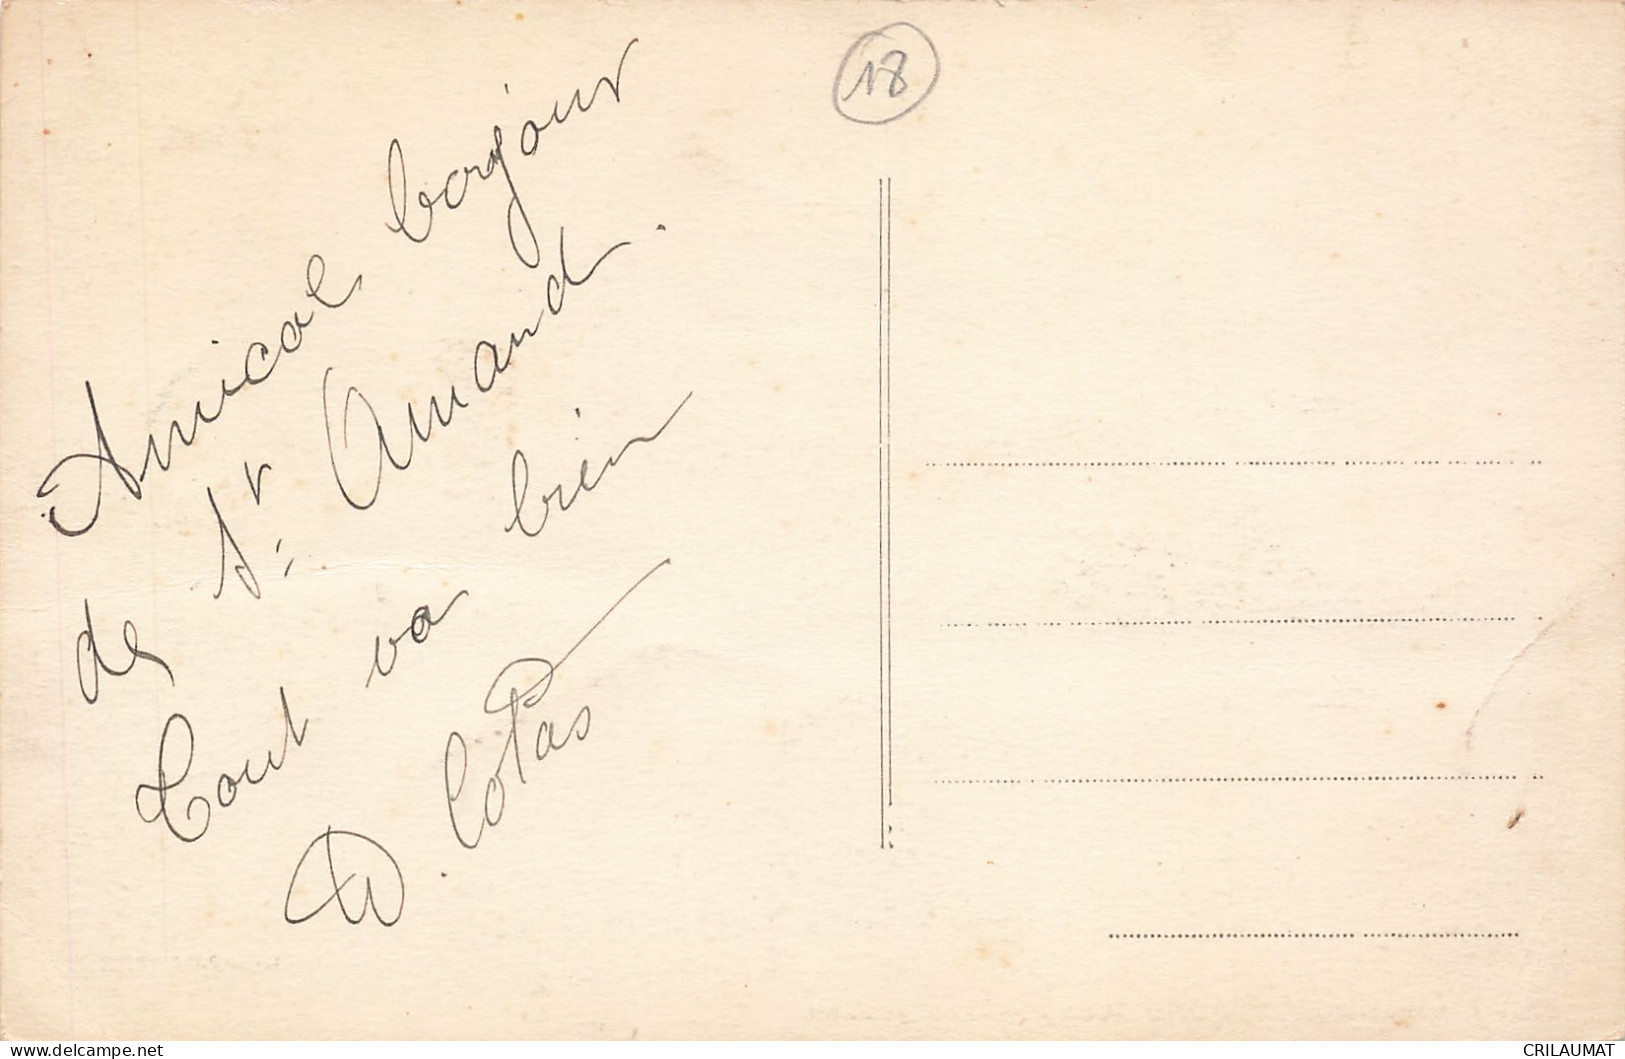 18
Amical bonjour
de St. Amand.
Tout va bien
D. Colas
www.delcampe.net
CRILAUMAT